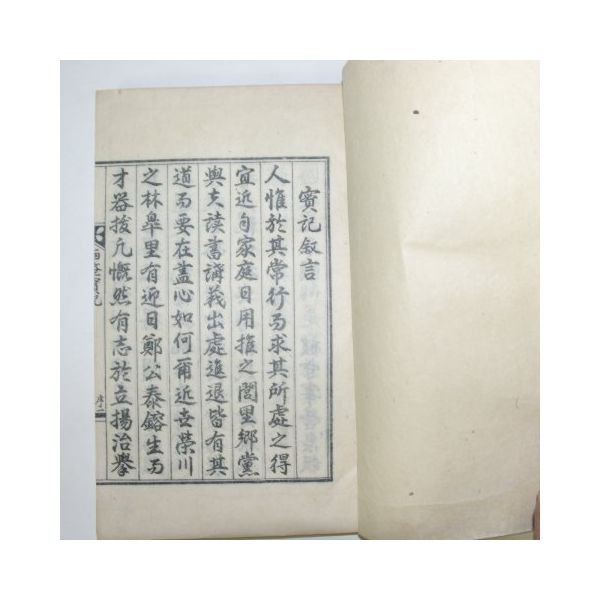 實記叙言
人惟於其常行而求其所處之得
宜近自家庭日用推之閭里鄉黨
與夫讀書講義出處進退皆有其
道而要在盡心如何爾近世榮川
之林皐里有迎日鄭公泰鎔生而
才器拔凡慨然有志於立揚治擧
實記